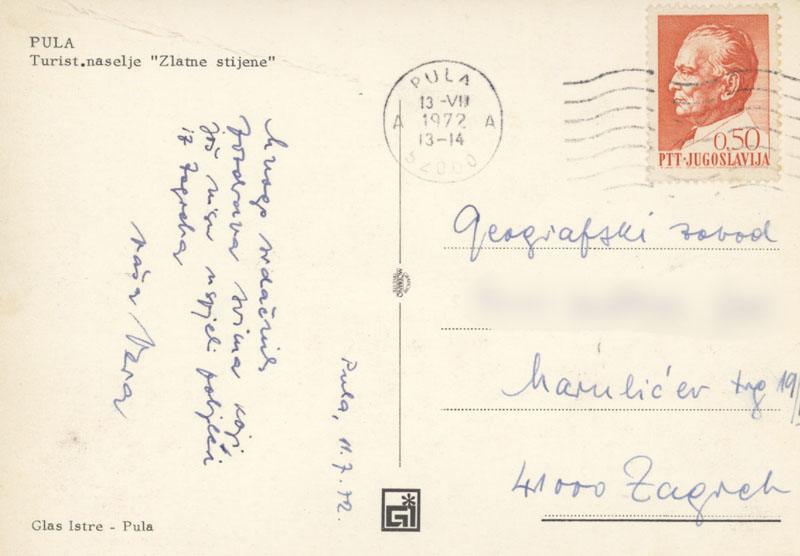 PULA
Turist.naselje "Zlatne stijene"
Mnogo srdačnih
pozdrava svima koji
još nisu uspjeli pobjeći
iz Zagreba
vaša Vera
Pula, 11.7.72.
Glas Istre - Pula
PULA
13-VII
1972
A A
13-14
52000
0,50
PTT·JUGOSLAVIJA
Geografski zavod
Marulićev trg 19/
41000 Zagreb
GI